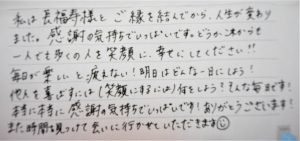 私は長福寿様とご縁を結んでから、人生が変わり
ました。感謝の気持ちでいっぱいです。どうかこれからも
一人でも多くの人を笑顔に、幸せにしてください!!
毎日が楽しいと疲れない!明日はどんな一日にしよう!
他人を喜ばすには(笑顔にするには)何をしよう?そんな毎日です!
本当に本当に感謝の気持ちでいっぱいです!ありがとうございます!
また時間を見つけて会いに行かせていただきます☺